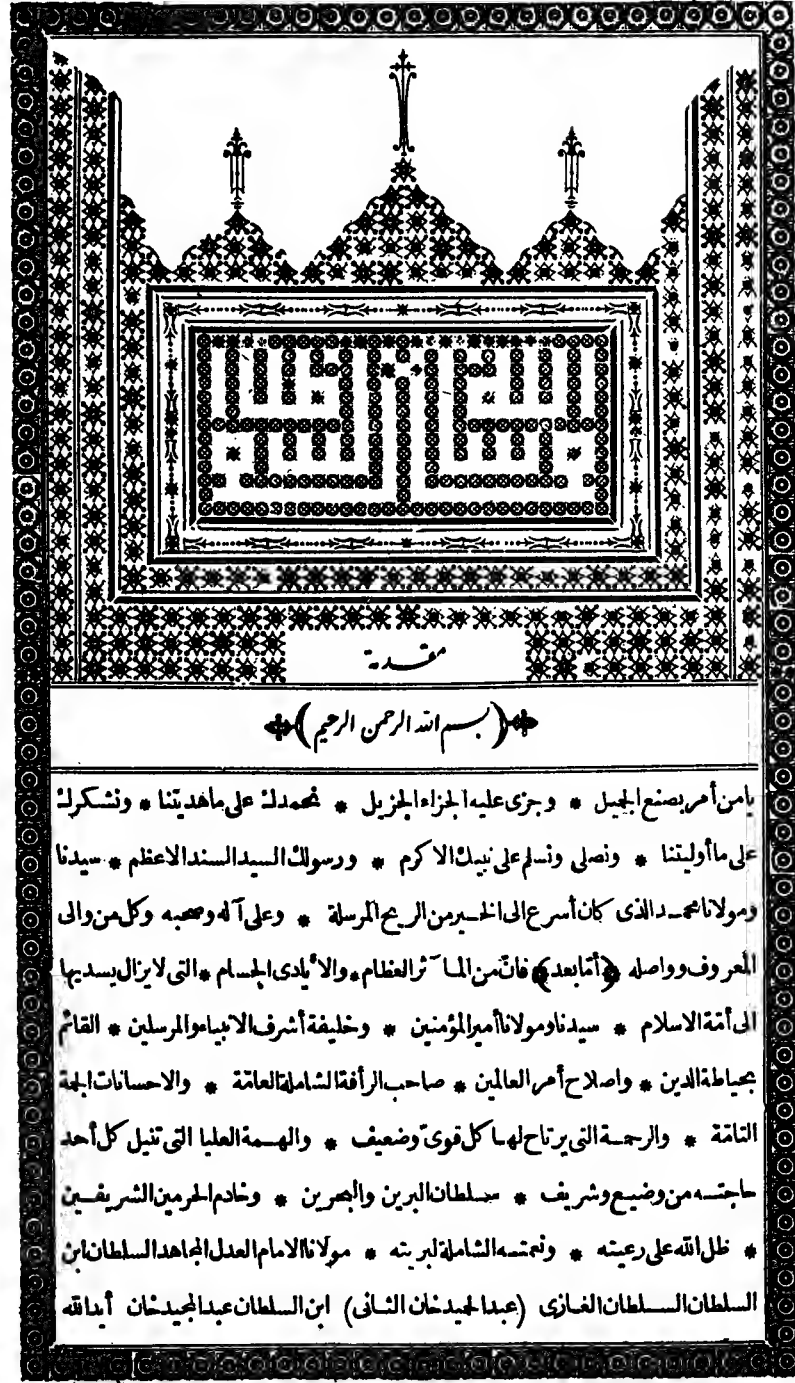 مقدمة
﴿بسم الله الرحمن الرحيم﴾
يا من أمر بصنع الجميل * وجزى عليه الجزاء الجزيل * نحمدك على ما هديتنا * ونشكرك
على ما أوليتنا * ونصلى ونسلم على نبيك الاكرم * ورسولك السيد السند الاعظم * سيدنا
ومولانا محمد الذى كان أسرع الى الخير من الريح المرسلة * وعلى آله وصحبه وكل من والى
المعروف وواصله ﴿أما بعد﴾ فانّ من المآثر العظام * والأيادى الجسام * التى لا يزال يسديها
الى أمّة الاسلام * سيدنا ومولانا أمير المؤمنين * وخليفة أشرف الانبياء والمرسلين * القائم
بحياطة الدين * واصلاح أمر العالمين * صاحب الرأفة الشاملة العامّة * والاحسانات الجمة
التامّة * والرحمة التى يرتاح لها كل قوىّ وضعيف * والهمة العليا التى تنيل كل أحد
حاجته من وضيع وشريف * سلطان البرين والبحرين * وخادم الحرمين الشريفين
* ظل الله على رعيته * ونعمته الشاملة لبريته * مولانا الامام العدل المجاهد السلطان ابن
السلطان السلطان الغازى (عبد الحميد خان الثانى) ابن السلطان عبد المجيد خان أيد الله